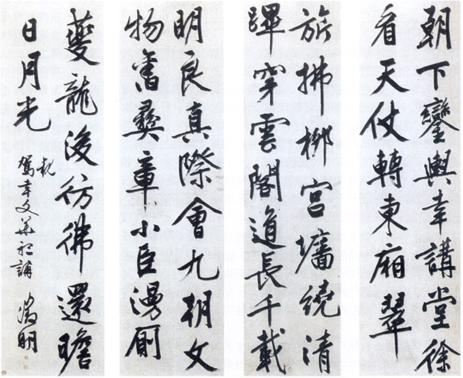 朝下鑾輿幸講堂徐
看天仗轉東廂翠
旂拂柳宮墻繞清
蹕穿雲閣道長千載
明良真際會九朝文
物舊彝章小臣漫廁
夔龍後彷彿還瞻
日月光
觀
駕幸文華 徵明